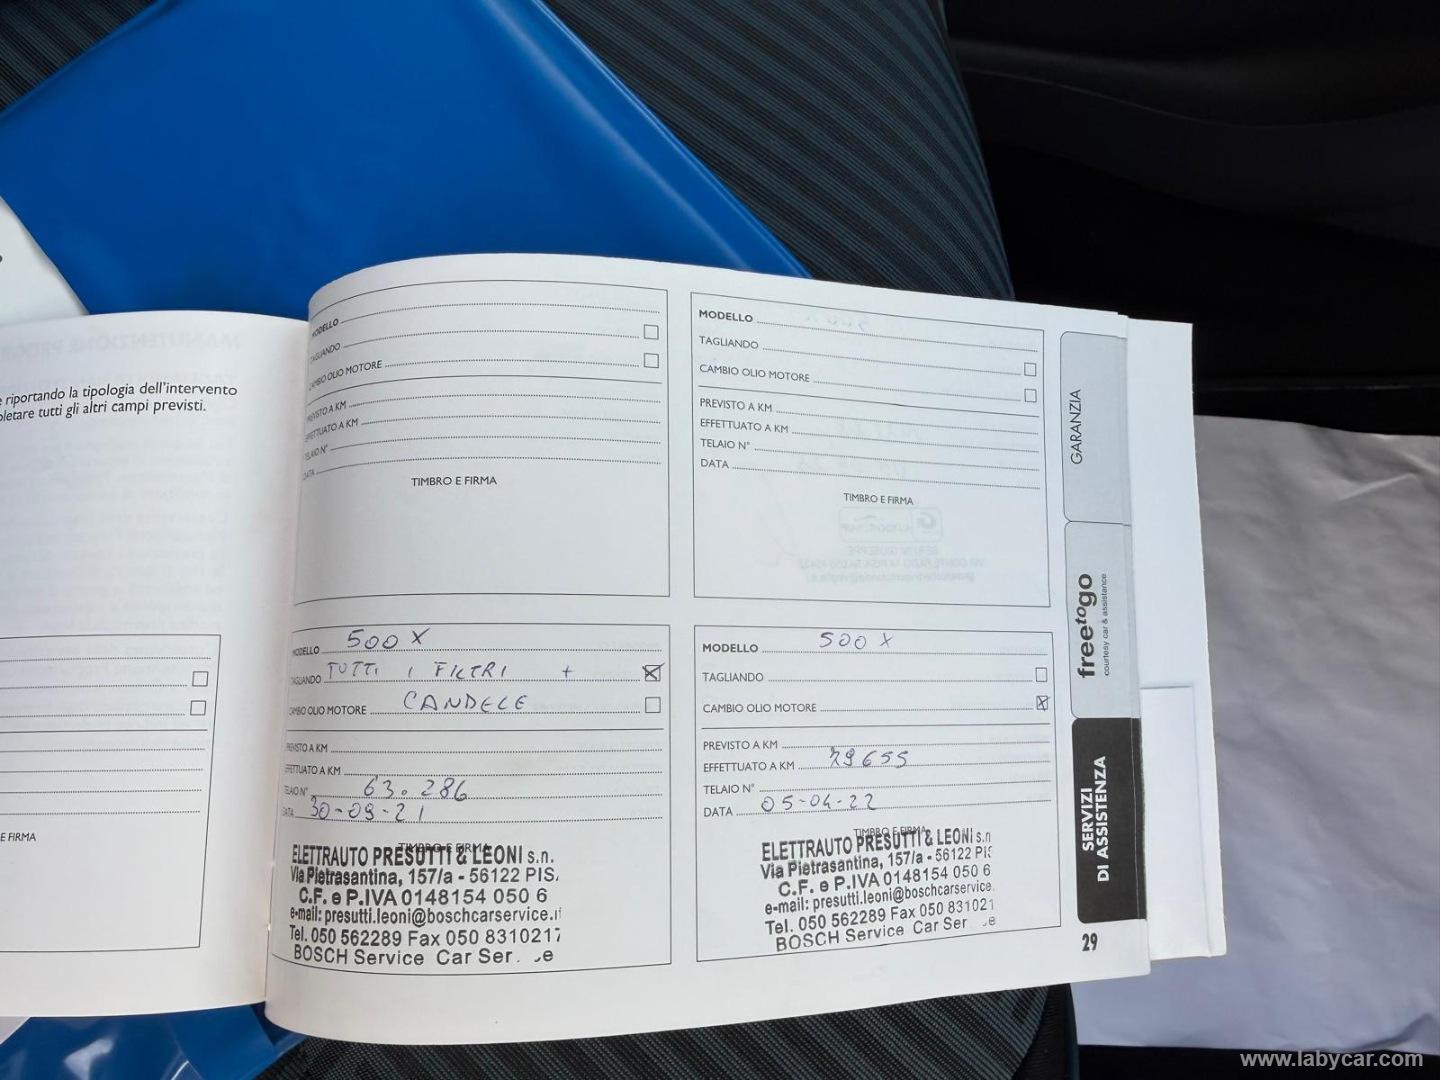 e riportando la tipologia dell'intervento
pletare tutti gli altri campi previsti.
E FIRMA
MODELLO
TAGLIANDO
CAMBIO OLIO MOTORE
PREVISTO A KM
EFFETTUATO A KM
TELAIO N°
DATA
TIMBRO E FIRMA
MODELLO
TAGLIANDO
CAMBIO OLIO MOTORE
PREVISTO A KM
EFFETTUATO A KM
TELAIO N°
DATA
TIMBRO E FIRMA
MODELLO 500 X
TAGLIANDO TUTTI I FILTRI +
CAMBIO OLIO MOTORE CANDELE
PREVISTO A KM
EFFETTUATO A KM
TELAIO N° 63.286
DATA 30-09-21
TIMBRO E FIRMA
ELETTRAUTO PRESUTTI & LEONI s.n.
Via Pietrasantina, 157/a - 56122 PIS
C.F. e P.IVA 0148154 050 6
e-mail: presutti.leoni@boschcarservice.it
Tel. 050 562289 Fax 050 8310217
BOSCH Service Car Ser
MODELLO 500 X
TAGLIANDO
CAMBIO OLIO MOTORE
PREVISTO A KM
EFFETTUATO A KM 79655
TELAIO N°
DATA 05-04-22
TIMBRO E FIRMA
ELETTRAUTO PRESUTTI & LEONI s.n
Via Pietrasantina, 157/a - 56122 PIS
C.F. e P.IVA 0148154 050 6
e-mail: presutti.leoni@boschcarservice.
Tel. 050 562289 Fax 050 831021
BOSCH Service Car Ser
GARANZIA
freetogo
courtesy car & assistance
SERVIZI
DI ASSISTENZA
29
www.labycar.com